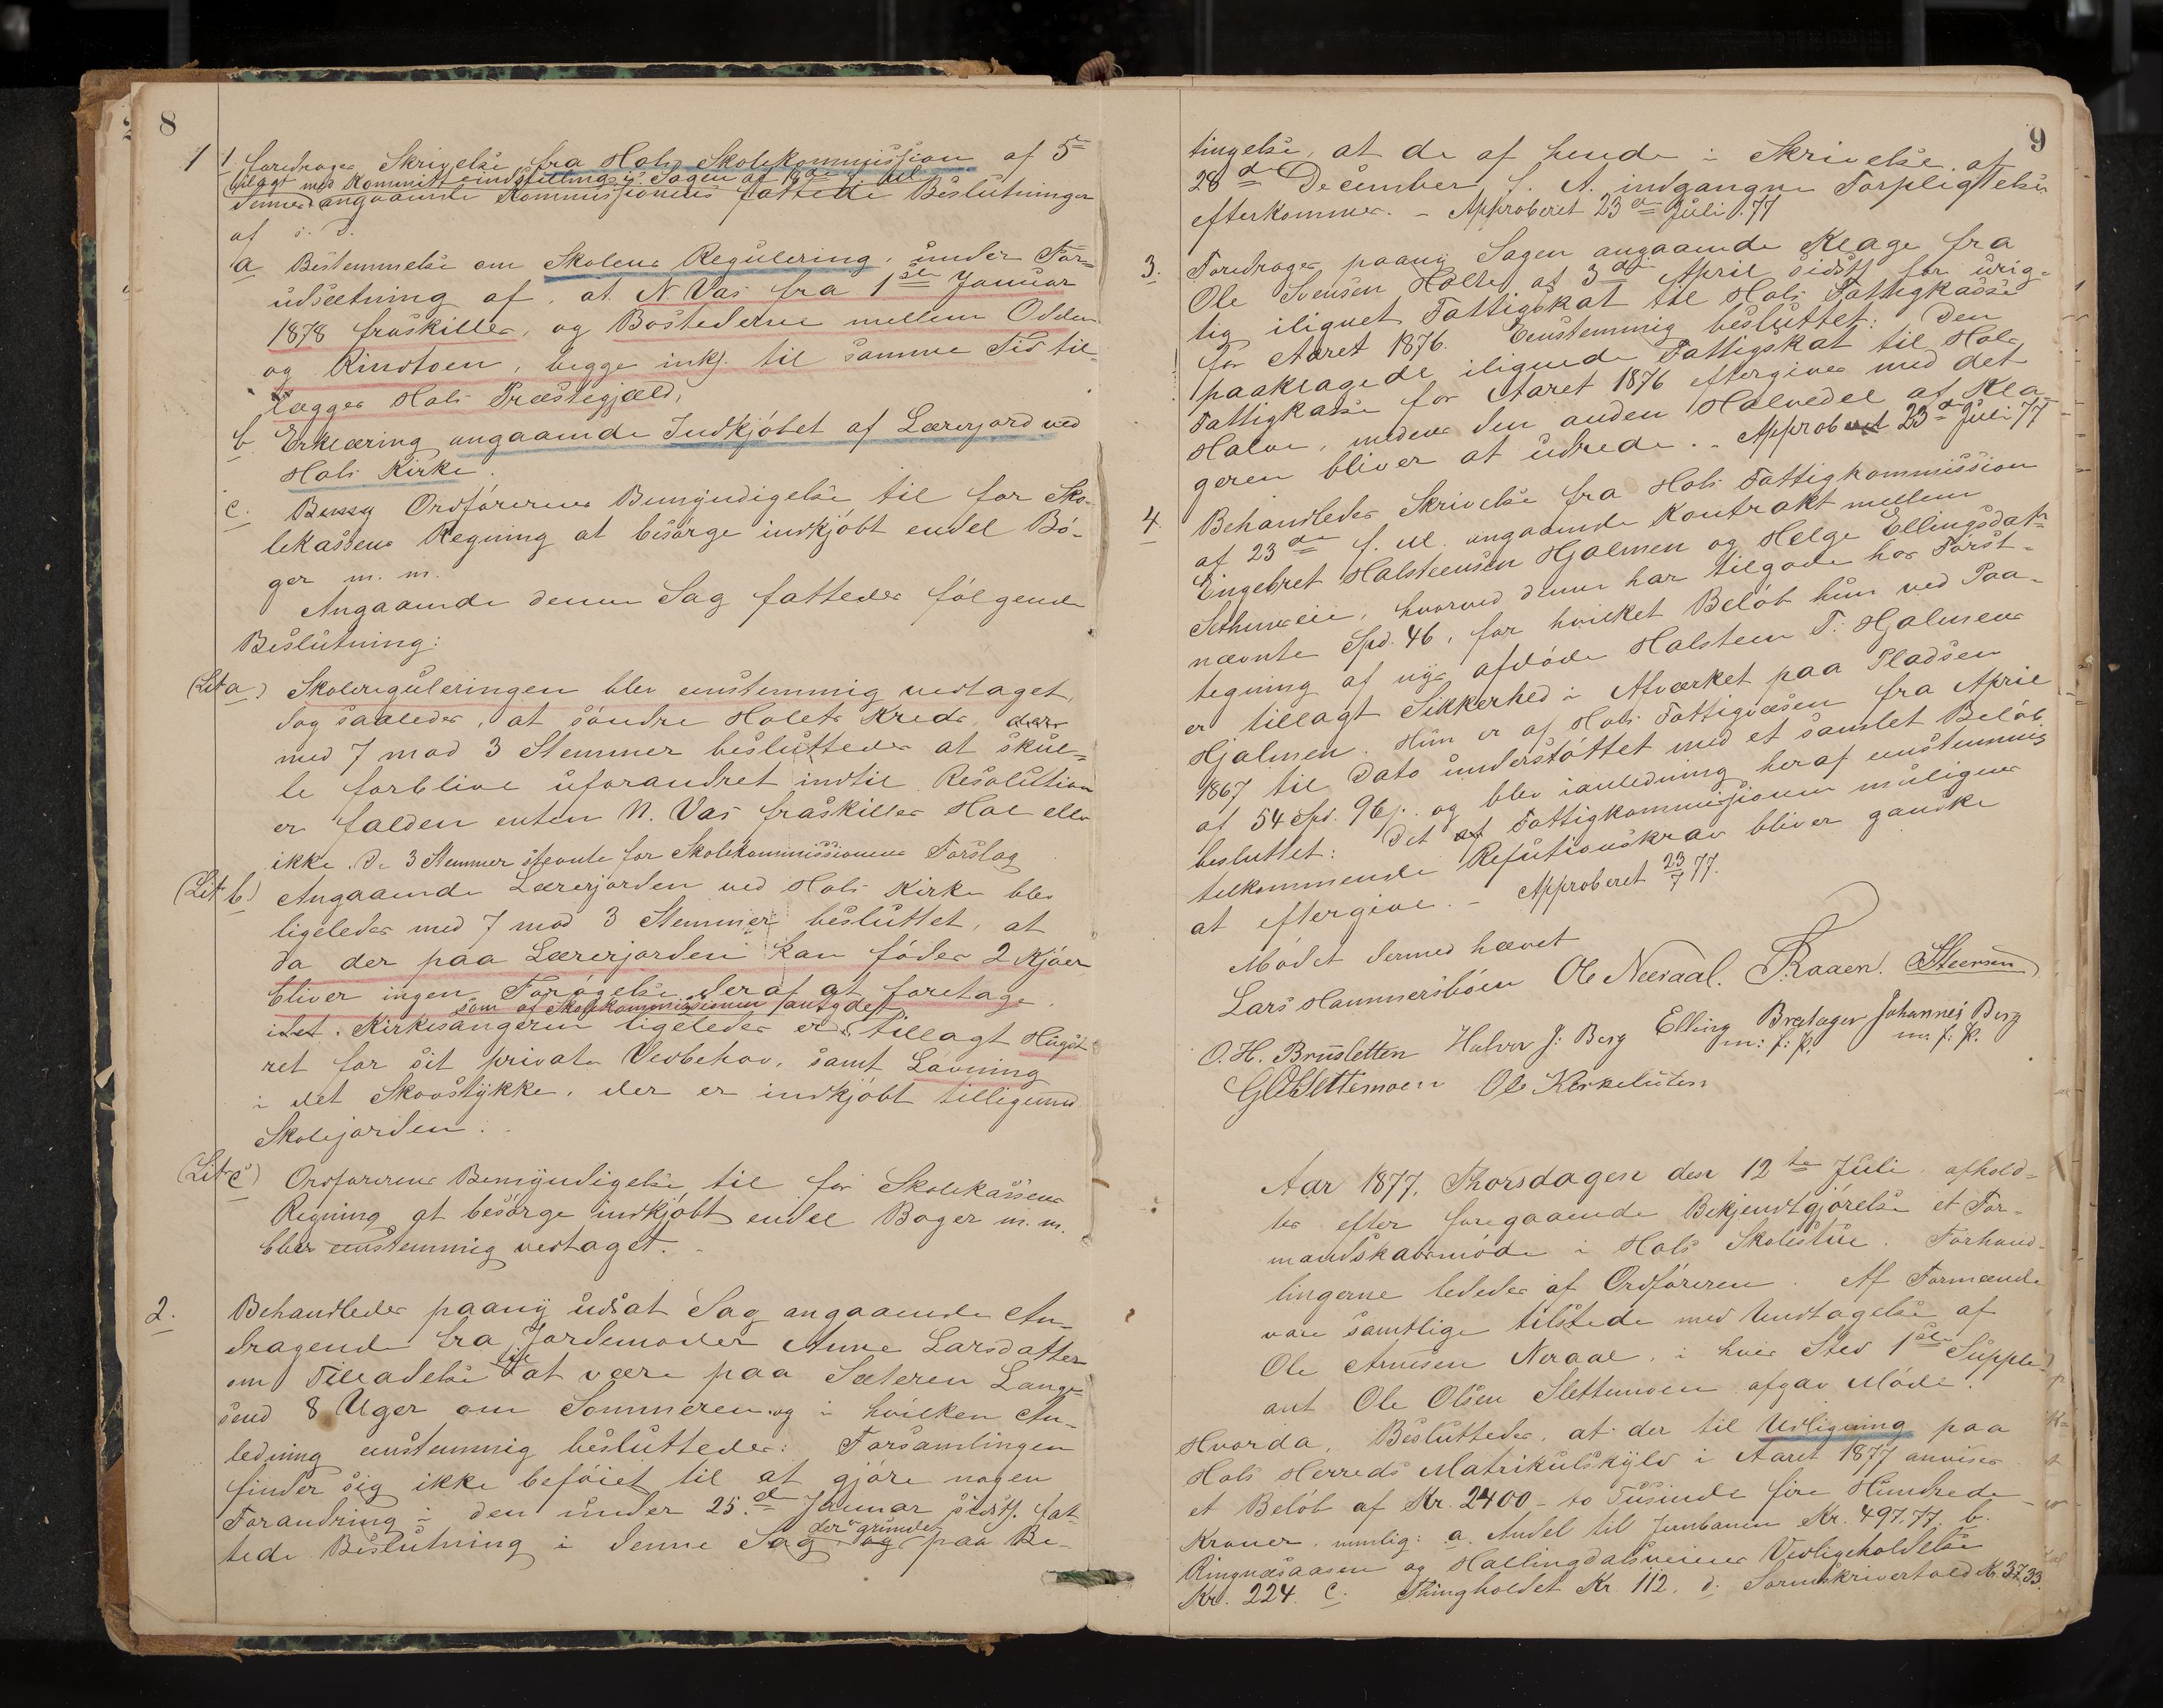 8
1 1. Foredrages Skrivelse fra Hols Skolekommission af 5te
bilagt med Komitteindstilling i Sagen af 19de f. M.
dennes angaaende Kommissionens fattede Beslutninger
af s. D.
a Bestemmelse om Skolens Regulering, under For=
udsætning af, at N. Vas fra 1ste Januar
1878 fraskilles, og Bostederne mellem Odden
og Rindtoen, begge inkl. til samme Tid til-
lægges Hols Præstegjæld,
b. Erklæring angaaende Indkjøbet af Lærerjord ved
Hols Kirke.
c. Ordførerens Bemyndigelse til for Sko-
lekassens Regning at besørge indkjøbt endel Bø-
ger m. m.
Angaaende denne Sag fattedes følgende
Beslutning:
(Lit a) Skolereguleringen blev enstemmig vedtaget,
dog saaledes, at søndre Holets Kreds
med 7 mod 3 Stemmer besluttedes at skul=
le forblive uforandret indtil Resolution
er falden enten N. Vas fraskilles Hol eller
ikke. De 3 Stemmer stemte for Skolekommissionens Forslag
(Lit b) Angaaende Lærerjorden ved Hols Kirke blev
ligeledes med 7 mod 3 Stemmer besluttet, at
da der paa Lærerjorden kan fødes 2 Kjøer
bliver ingen Forøgelse deraf at foretage
som af Skolekommissionen antydet
idet Kirkesangeren ligeledes er tillagt Hugst
ret for sit private Vedbehov, samt Løvning
i det Skovstykke, der er indkjøbt tilligemed
Skolejorden.
(Lit c) Ordførerens Bemyndigelse til for Skolekassens
Regning at besørge indkjøbt endel Bøger m. m.
blev enstemmig vedtaget. -
2. Behandledes paany udsat Sag angaaende An-
dragende fra Jordemoder Anne Larsdatter
om Tilladelse til at være paa Sæteren Lange-
send 8 Uger om Sommeren og i hvilken An-
ledning enstemmig besluttedes: Forsamlingen
finder sig ikke beføiet til at gjøre nogen
Forandring i den under 25de Januar sidstl. fat-
tede Beslutning i denne Sag der grundet og paa Be-
9
tingelse, at de af hende i Skrivelse af
28de December f. A. indgangne Forpligtelser
efterkommes. - Approberet 23de Juli 77
3. Foredroges paany Sagen angaaende Klage fra
Ole Svensen Holte af 3die April sidstl for urig-
tig ilignet Fattigskat til Hols Fattigkasse
for Aaret 1876. Eenstemmig besluttet: Den
paaklagede ilignede Fattigskat til Hols
Fattigkasse for Aaret 1876 eftergives med det
Halve, medens den anden Halvedel af Kla-
geren bliver at udrede. - Approberet 23de Juli 77
4. Behandledes Skrivelse fra Hols Fattigkommission
af 23de f. M. angaaende Kontrakt mellem
Engebret Halsteensen Hjalmen og Helge Ellingsdat=
hvorved denne har tilgode hos Først-
nævnte Spd. 46, for hvilket Beløb hun ved Paa-
tegning af afdøde Halsten T. Hjalmens
er tillagt Sikkerhed i Afværket paa Pladsen
Hjalmen. Hun er af Hols Fattigvæsen fra April
1867 til Dato understøttet med et samlet Beløb
af 54 Spd. 96 s. og blev ianledning heraf enstemmig
besluttet: Det af Fattigkommissionen muligens
tilkommende Refusionskrav bliver ganske
at eftergive. - Approberet 23/7 77.
Mødet dermed hævet
Lars Hammersbøen Ole Neeraal. T. Raaen. S. Steensen
O. H. Brusletten Halvor J: Berg Elling Bratager Johannes Berg
m: f: P. m. f. P.
G O Slettemoen Ole Kirkeluten
Aar 1877, Thorsdagen den 12te Juli afhold-
tes efter foregaaende Bekjendtgjørelse et For-
mandskabsmøde i Hols Skolestue. Forhand-
lingerne lededes af Ordføreren. Af Formænde
vare samtlige tilstede med Undtagelse af
Ole Arnesen Neraal, i hvis Sted 1ste Supple-
ant Ole Olsen Slettemoen afgav Møde.
Hvorda, Besluttedes, at der til Udligning paa
Hols Herreds Matrikulskyld i Aaret 1877 anvises
et Beløb af Kr. 2400 - to Tusinde fire Hundrede
Kroner, nemlig: a. Andel til Jernbanen Kr. 497.77. b.
Ringnæsaasen og Hallingdalsveiens Vedligeholdelse
Kr. 224. c. Thingholdet Kr. 112. d. Sorenskrivertold Kr. 37,33.